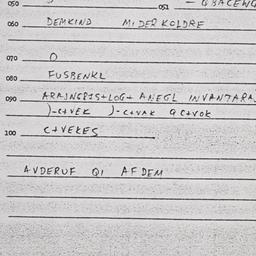 050 051 — QBACEWG
060 DEMKIND MIDER KOLDRE
070 O
080 FUSBENKL
090 ARAJNGBIS+LOG+ ANEGL INVANTARA
)-C+VEK )-C+VAK QC+VOK
100 C+VEKES
AVDERUF QI AFDEM